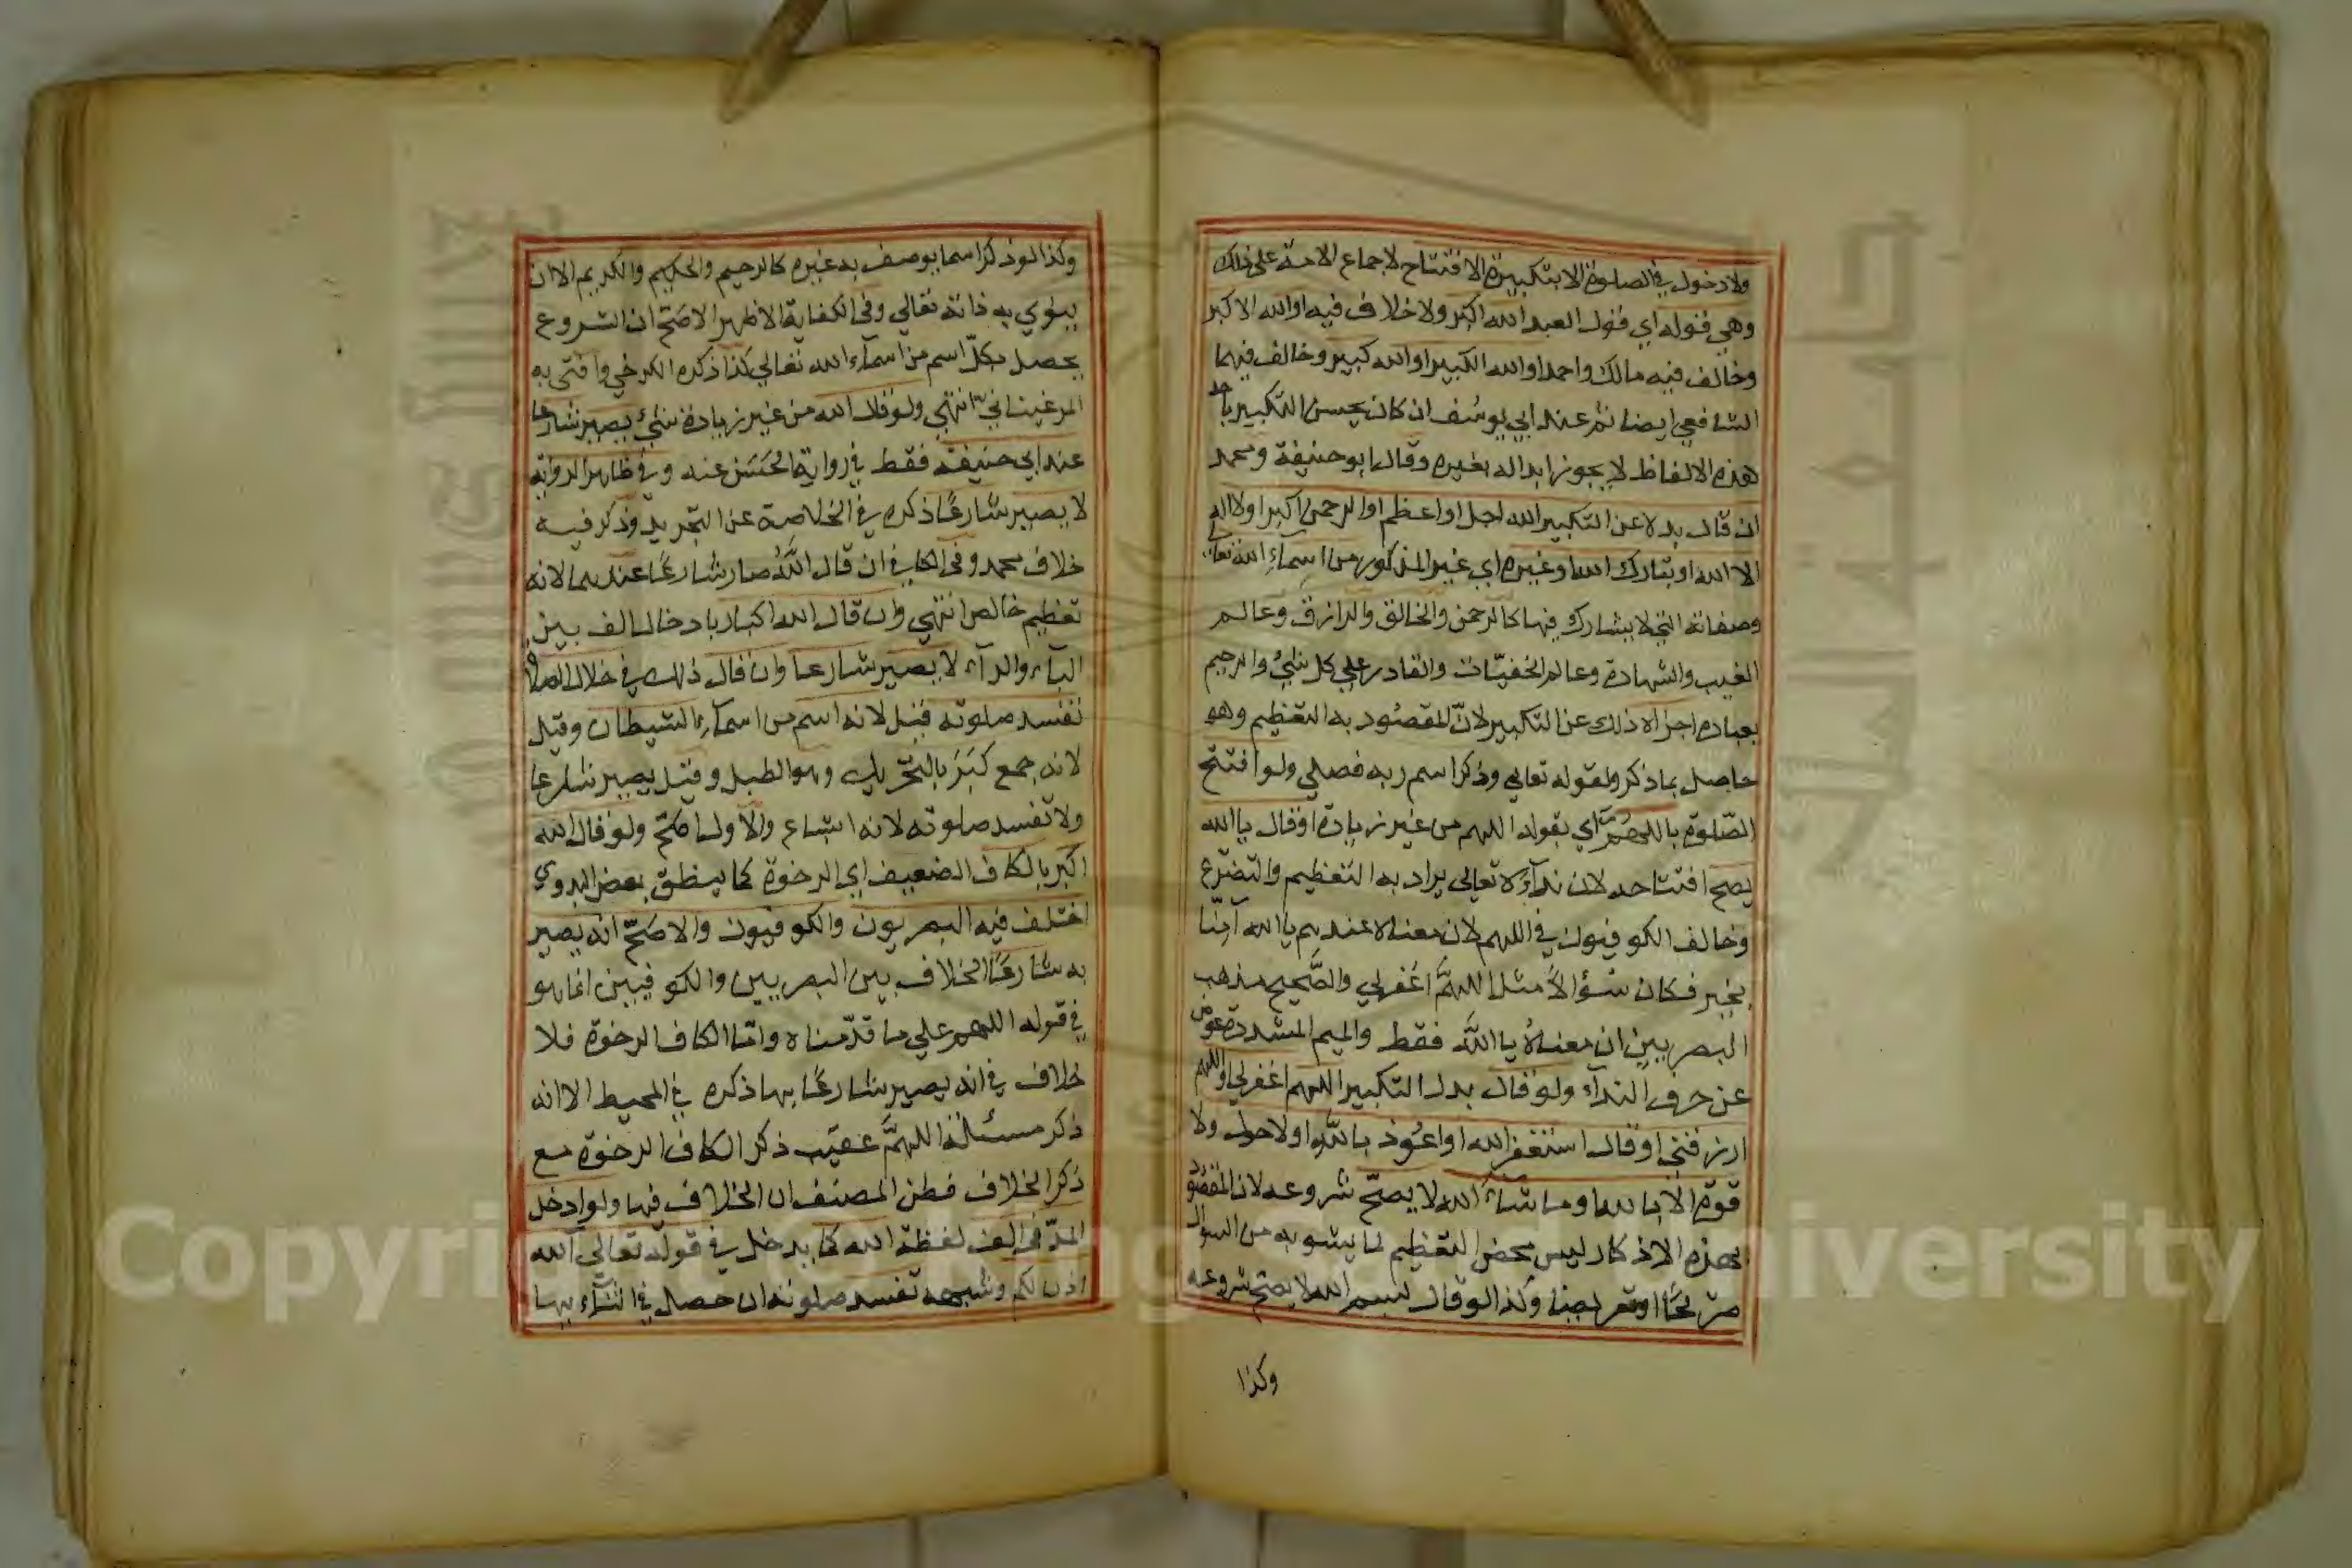 ولا دخول في الصلوة الا بتكبيرة الافتتاح لاجماع الامة على ذلك
وهي قوله اي قول العبد الله اكبر ولا خلاف فيه او الله الاكبر
وخالف فيه مالك واحمد او الله الكبير او الله كبير وخالف فيهما
الشافعي ايضا ثم عند ابي يوسف ان كان يحسن التكبير باحد
هذه الالفاظ لا يجوز ابداله بغيره وقال ابو حنيفة ومحمد
ان قال بدلا عن التكبير الله اجل او اعظم او الرحمن اكبر او لا اله
الا الله او تبارك الله او غيره اي غير المذكور من اسماء الله تعالى
وصفاته التي لا يشارك فيها كالرحمن والخالق والرازق وعالم
الغيب والشهادة وعالم الخفيّات والقادر على كل شئ والرحيم
بعباده اجزاه ذلك عن التكبير لانّ المقصود به التعظيم وهو
حاصل بما ذكر ولقوله تعالى وذكر اسم ربه فصلى ولو افتتح
الصّلوة باللهمّ اي بقوله اللهم من غير زيادة او قال يا الله
يصح افتتاحه لان نداءه تعالى يراد به التعظيم والتضرّع
وخالف الكوفيون في اللهم لان معناه عندهم يا الله آمنّا
بخير فكان سؤالاً مثل اللهمّ اغفرلي والصّحيح مذهب
البصريين ان معناهُ يا اللّه فقط والميم المشددة عوض
عن حرف النداء ولو قال بدل التكبير اللهم اغفرلي او اللهم
ارزقني او قال استغفر الله او اعوذ باللّه او لا حول ولا
قوة الا بالله او ما شاء الله لا يصحّ شروعه لان المقصود
بهذه الاذكار ليس محض التعظيم لما يشوبه من السوال
صريحًا او تعريضا وكذا لو قال بسم الله لا يصح شروعه
وكذا
وكذا لو ذكر اسما يوصف به غيره كالرحيم والحكيم والكريم الا ان
ينوي به ذاته تعالى وفي الكفاية الاظهر الاصحّ ان الشروع
يحصل بكلّ اسم من اسماء الله تعالى كذا ذكره الكرخي وافتى به
المرغيناني انتهى ولو قال الله من غير زيادة شئ يصير شارعا
عند ابي حنيفة فقط في رواية الحَسَن عنه وفي ظاهر الرواية
لا يصير شارعًا ذكره في الخلاصة عن التجريد وذكر فيه
خلاف محمد وفي الكافي ان قال اللّهُ صار شارعًا عندهما لانه
تعظيم خالص انتهى وان قال الله اكبار بادخال الف بين
الباء والراء لا يصير شارعا وان قال ذلك في خلال الصلاة
تفسد صلوته قيل لانه اسم من اسماء الشيطان وقيل
لانه جمع كَبَرَ بالتحريك وهو الطبل وقيل يصير شارعا
ولا تفسد صلوته لانه اشباع والاول اصحّ ولو قال الله
اكبر بالكاف الضعيف اي الرخوة كما ينطق بعض البدوي
اختلف فيه البصريون والكوفيون والاصحّ انه يصير
به شارعًا الخلاف بين البصريين والكوفيين انما هو
في قوله اللهم على ما قدّمناه وامّا الكاف الرخوة فلا
خلاف في انه يصير شارعًا بها ذكره في المحيط الا انه
ذكر مسئلة اللهمَّ عقيب ذكر الكاف الرخوة مع
ذكر الخلاف فظن المصنف ان الخلاف فيها ولو ادخل
المدّ في الف لفظة الله كما يدخل في قوله تعالى آلله
اذن لكم وشبهه تفسد صلوته ان حصل في اثنائها
Copyright © King Saud University